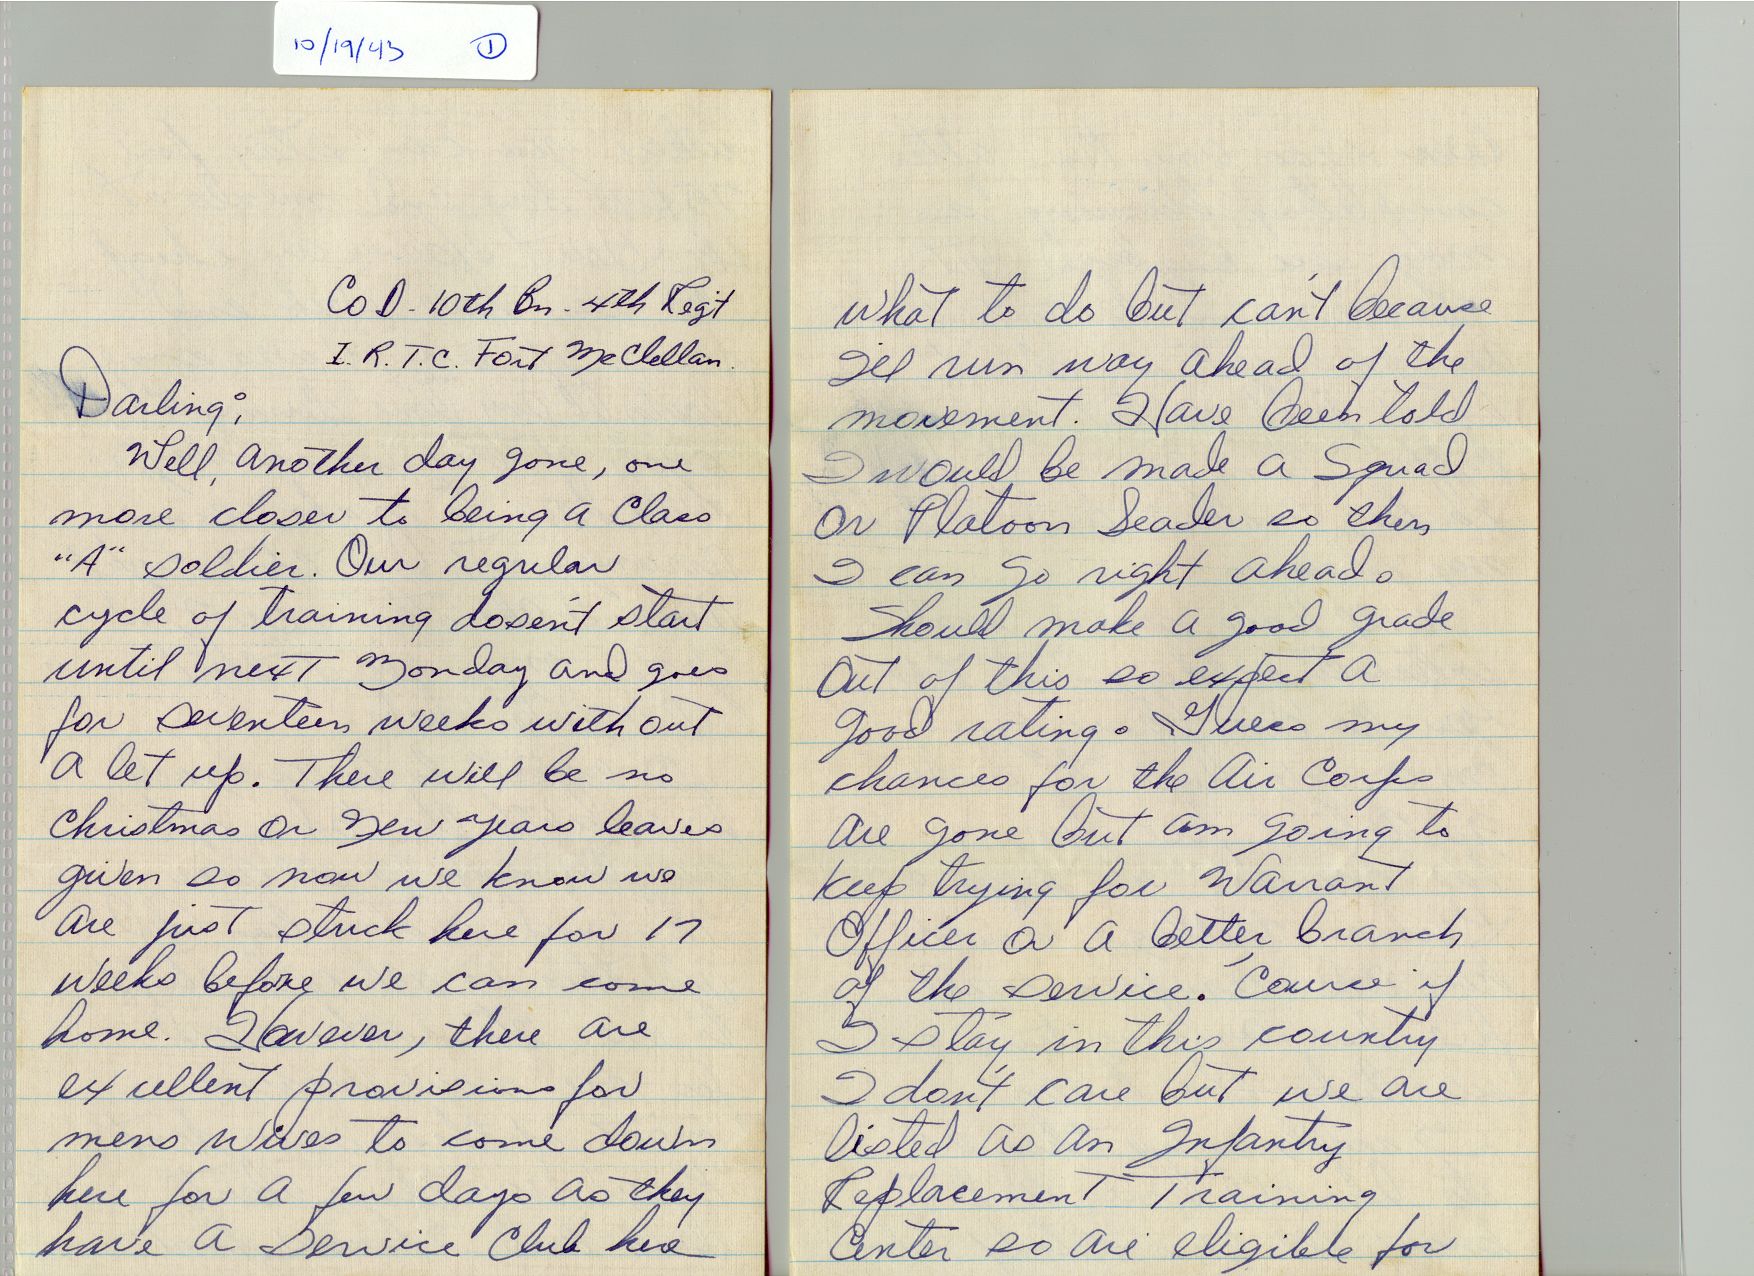 10/19/43 ①
Co D - 10th Bn. 4th Regt
I. R. T. C. Fort McClellan.
Darling;
Well, another day gone, one
more closer to being a Class
"A" soldier. Our regular
cycle of training dosen't start
until next Monday and goes
for seventeen weeks with out
a let up. There will be no
Christmas or New Years leaves
given so now we know we
are just stuck here for 17
weeks before we can come
home. However, there are
excellent provisions for
mens wives to come down
here for a few days as they
have a Service Club here
what to do but can't because
I'll run way ahead of the
movement. Have been told
I would be made a Squad
or Platoon Leader so then
I can go right ahead.
Should make a good grade
out of this so expect a
good rating. Guess my
chances for the Air Corps
are gone but am going to
keep trying for Warrant
Officer or a better branch
of the service. 'Course if
I stay in this country
I don't care but we are
listed as an Infantry
Replacement Training
Center so are eligible for